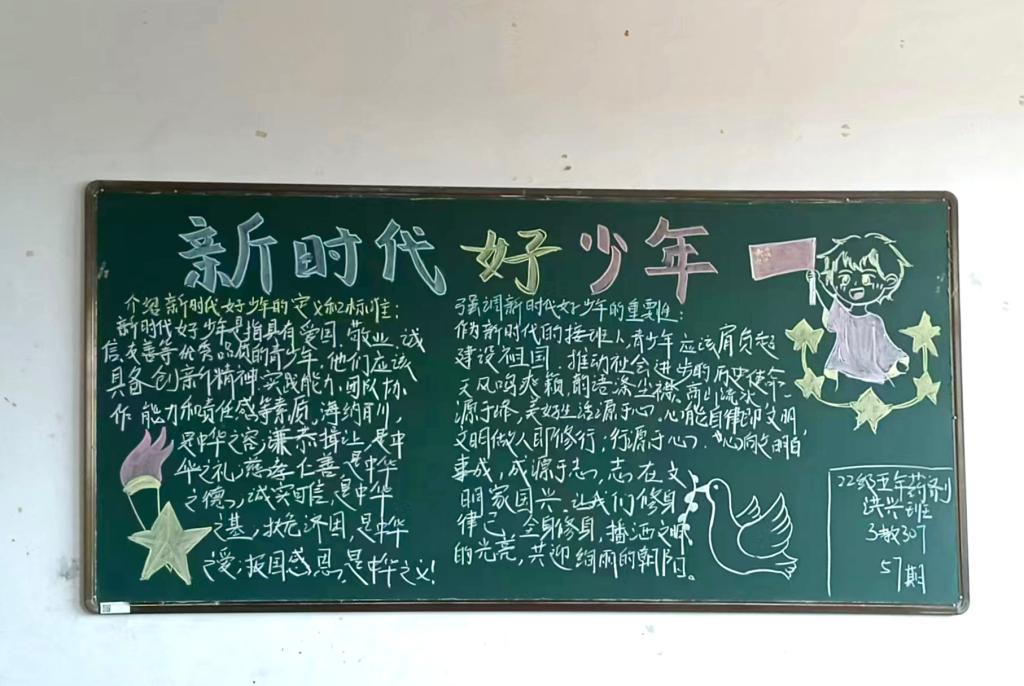 新时代好少年
介绍新时代好少年的定义和标准：
新时代好少年是指具有爱国、敬业、诚
信、友善等优秀品质的青少年，他们应该
具备创新精神、实践能力、团队协
作能力和责任感等素质，海纳百川，
是中华之容；谦恭揖让，是中
华之礼；慈孝仁善，是中华
之德；诚实可信，是中华
之基，扶危济困，是中华
之爱；报国感恩，是中华之义！
强调新时代好少年的重要性：
做新时代的接班人，青少年应该肩负起
建设祖国、推动社会进步的历史使命，
天风鸣爽籁，前涤尘襟，高山流水
源于琴，美好生活源于心。心能自律即文明，
文明做人即修行，行源于心，心向文明自
事成，成源于志，志在文
明家国兴，让我们修身
律己，全身修身，播洒文明
的光亮，共迎绚丽的朝阳。
22级五年药剂
洪兴班
3教307
57期